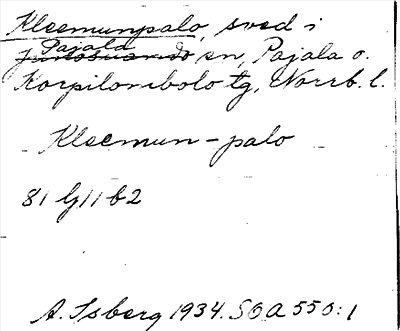 Kleemunpalo, sved i
Pajala
Junosuando sn, Pajala o.
Korpilombolo tg, Norrb. l.
Kleemun-palo
81 G 11 b 2
A. Isberg 1934. SOA 550:1